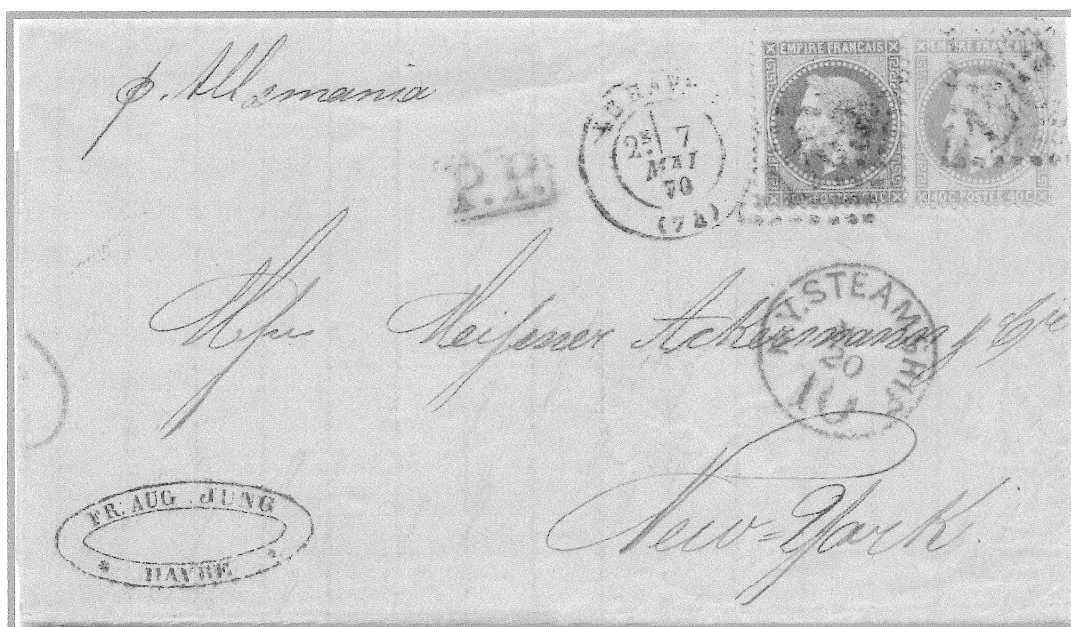 p. Allemania
P.P.
LE HAV
2E 7
MAI
70
(74)
EMPIRE FRANÇAIS
POSTES
EMPIRE FRANÇAIS
40C POSTES 40C
Meifsner Ackermann & Cie
N.Y. STEAMSHIP
20
10
New-York.
FR. AUG. JUNG
* HAVRE *